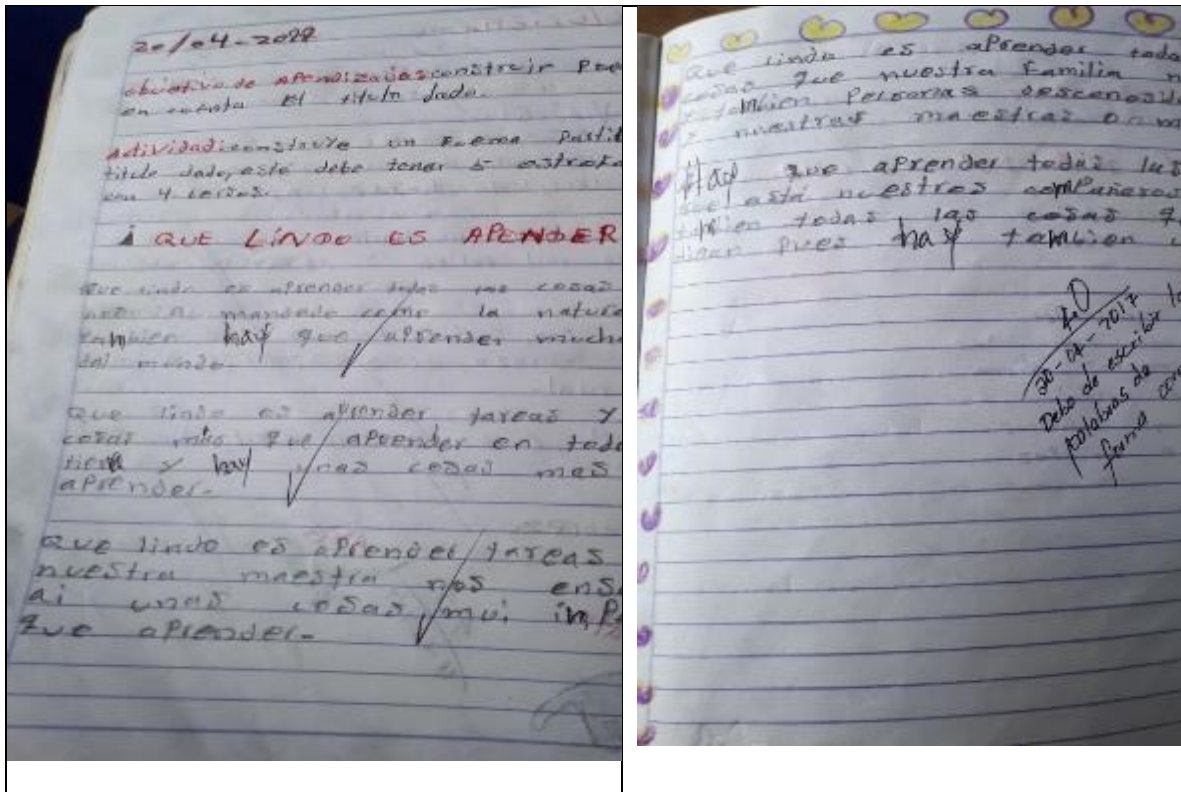 20/04-2022
objetivo de aPendizajes construir Poe
en cuenta El titulo dado.
actividad: construye un Poema Partie
titulo dado, este debe tener 5 estrofa
con 4 versos.
¡ QUE LINDO ES APENDER
Que lindo es aPrender todas las cosas
mandado como la natura
tambien hay que aprender mucha
del mundo.
Que lindo es aPrender tareas y
cosas mas que aprender en tod
tiera y hay unas cosas mas
aPrender.
Que lindo es aPrender tareas
nuestra maestra nos ens
ai unas cosas mui imP
que aPrender.
Que lindo es aPrender toda
cosas que nuestra Familia n
tambien Personas desconosid
y nuestras maestras
Hay que aPrender todas las
nuestros comPañeros
tambien todas las cosas q
digan pues hay tambien
4.0
20-04-2017
Debo de escribir la
palabras de
forma corr